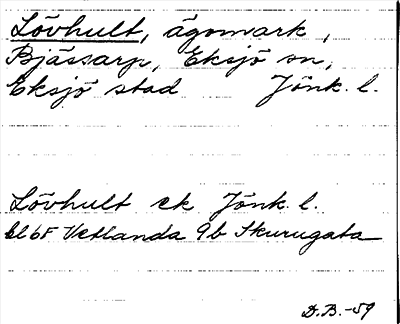 Lövhult, ägomark,
Bjässarp, Eksjö sn,
Eksjö stad Jönk. l.
Lövhult ek Jönk. l.
6F Vetlanda 9b Skurugata
D.B.-59